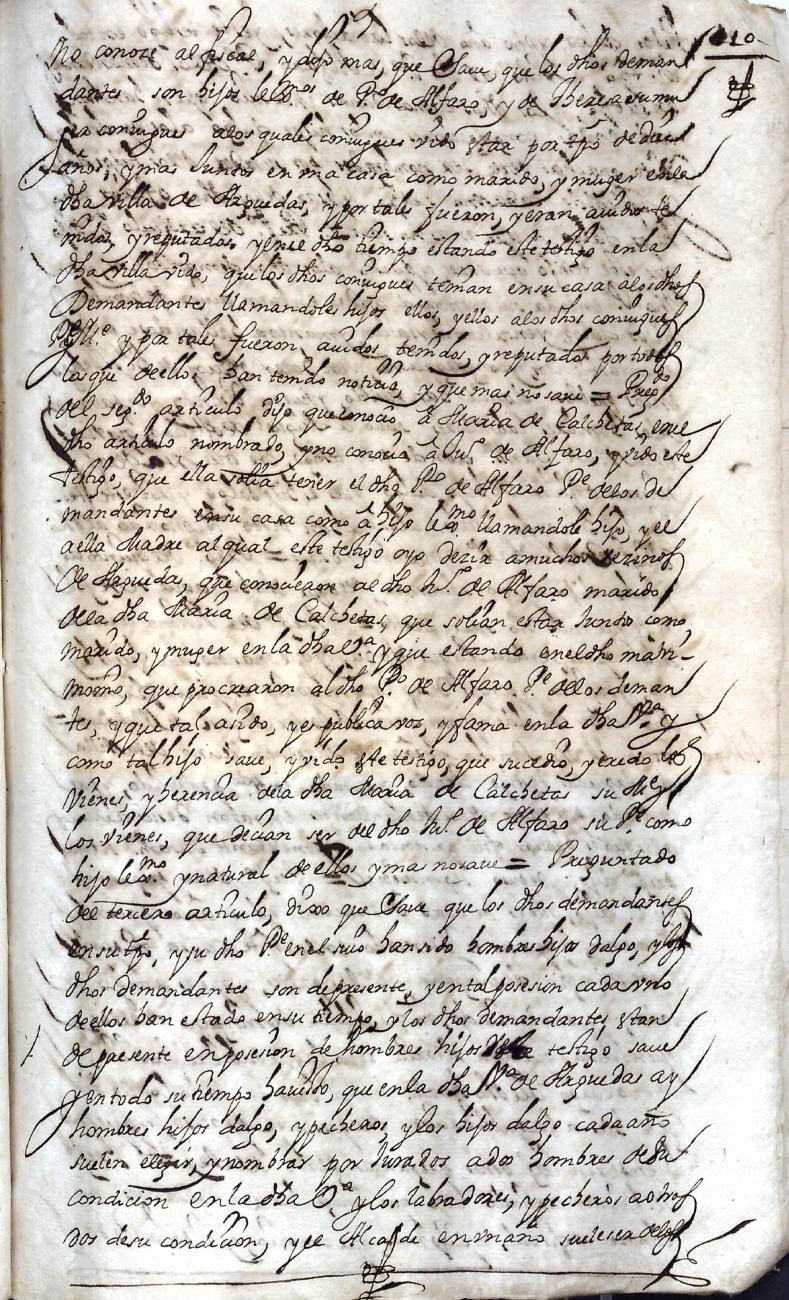 110
No conoze al fiscal, y dijo mas, que Save, que los dhos deman
dantes son hijos lexmos de Po de Alfaro, y de Theresa su mu
ger conyuges a los quales conyuges vido estar por tpo de diez
años, y mas Juntos en una casa como marido, y muger en la
dha villa de Arguedas, y por tales fueron, y eran, avidos te
nidos, y reputados, y en el dho tiempo estando este testigo en la
dha villa vido, que los dhos conyuges tenian en su casa a los dhos
Demandantes llamandoles hijos ellos, y ellos a los dhos conyuges
y por tales fueron, avidos, tenidos, y reputados por todos
los que de ellos han tenido noticia, y que mas no save = Pregdo
del segdo articulo dijo que conocio â Maria de Calchetas en el
dho articulo nombrado, y no conocia â Jun de Alfaro, y vido este
testigo, que ella solia tener el dho Po de Alfaro Pe de los de
mandantes en su casa como â hijo lexmo llamandole hijo, y el
a ella Madre al qual este testigo oyo dezir a muchos vezinos
de Arguedas, que conocieron al dho Jun de Alfaro marido
de la dha Maria de Calchetas, que solian estar Junto como
marido, y muger en la dha Va y que estando en el dho matri-
monio, que procrearon al dho Po de Alfaro Pe de los deman
tes, y que tal a sido, y es publica voz, y fama en la dha Va y
como tal hijo save, y vido este testigo, que sucedio, y eredo los
vienes, y herencia de la dha Maria de Calchetas su Me y
los vienes, que decian ser del dho Jun de Alfaro su Pe como
hijo lexmo y natural de ellos y mas no save = Preguntado
del tercero articulo, dixo que Save que los dhos demandantes
en su tpo, y su dho Pe en el suio han sido hombres hijos dalgo, y los
dhos demandantes son de presente, y en tal posesion cada uno
de ellos han estado en su tiempo, y los dhos demandantes estan
de presente en posesion de hombres hijos testigo save
y en todo su tiempo ha vido, que en la dha Va de Arguedas ay
hombres hijos dalgo, y pecheros, y los hijos dalgo cada año
suelen elegir, y nombrar por Jurados a dos hombres de su
condicion en la dha Va y los labradores, y pecheros a otros
dos de su condicion, y el Alcalde en un año suele ser de los